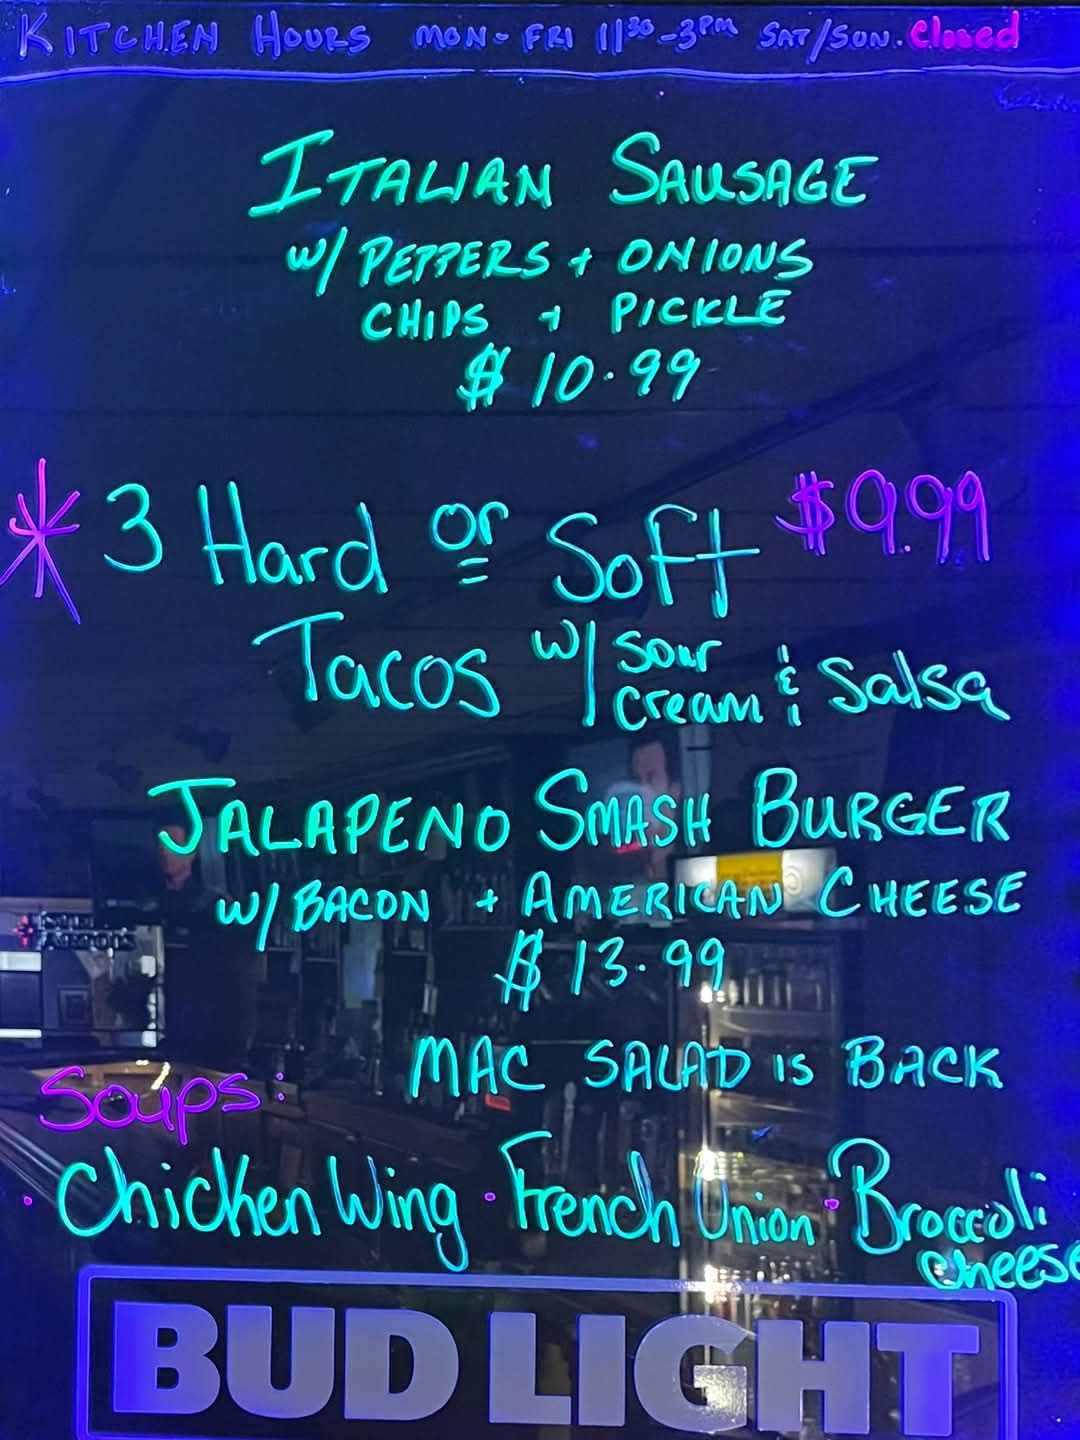 KITCHEN HOURS MON - FRI 11³⁰ - 3PM SAT/SUN. Closed
ITALIAN SAUSAGE
W/ PEPPERS + ONIONS
CHIPS + PICKLE
$10.99
* 3 Hard or Soft $9.99
Tacos w/ sour cream & Salsa
JALAPENO SMASH BURGER
W/ BACON + AMERICAN CHEESE
$13.99
MAC SALAD IS BACK
Soups:
· Chicken Wing · French Onion · Broccoli
cheese
BUD LIGHT